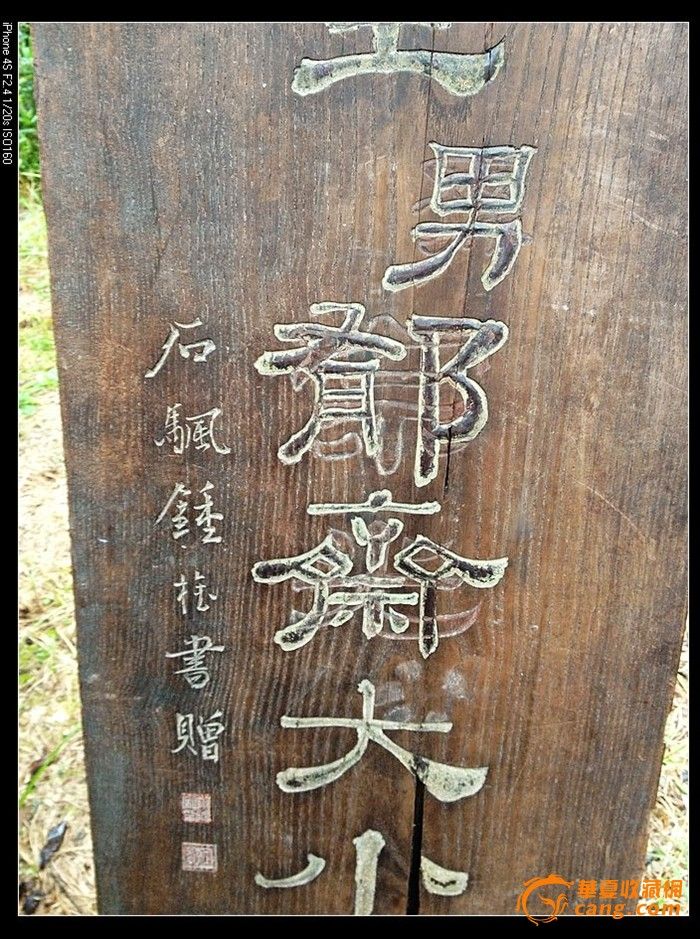 iPhone 4S F2.4 1/20s ISO160
男齋大小
石颿鍾書贈
華夏收藏網
cang.com